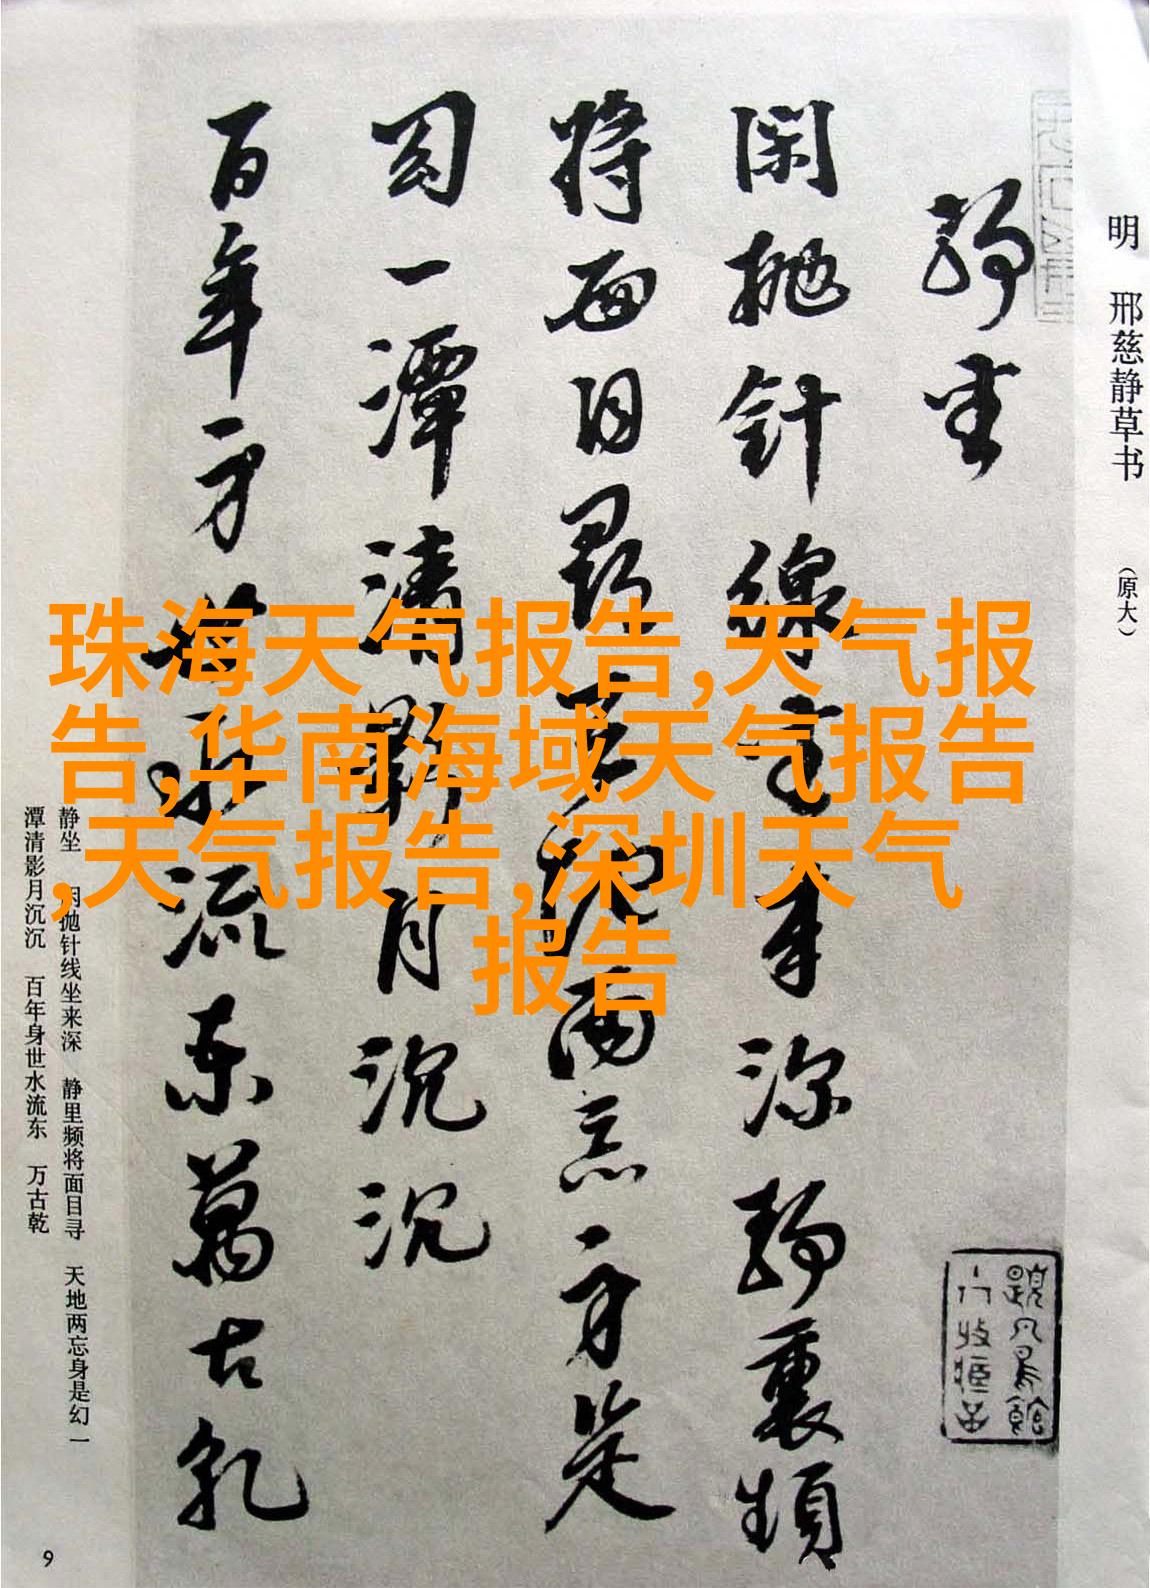 明 邢慈静草书 （原大）
静坐
閑抛針線坐来深静裏頻
將面目尋天地兩忘身是
幻一潭清影月沉沉
百年身世水流東萬古乾
珠海天气报告,天气报
告,华南海域天气报告
,天气报告,深圳天气
报告
静坐 闲抛针线坐来深 静里频将面目寻 天地两忘身是幻 一
潭清影月沉沉 百年身世水流东 万古乾
9